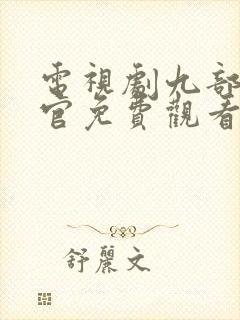 電視劇九部
官免費觀看
舒麗文